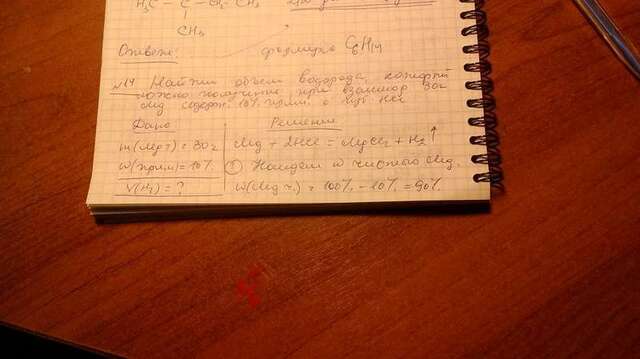 H₃C — C — CH₂ — CH₃
CH₃
Ответ: формула C₆H₁₄
№14 Найти объем водорода, который
можно получить при взаимод 30г
Mg содерж. 10% прим. с HCl
Дано Решение
m(Mg) = 30г Mg + 2HCl = MgCl₂ + H₂↑
w(прим) = 10% ① Найдем w чистого Mg.
V(H₂) = ? w(Mg ч.) = 100% - 10% = 90%